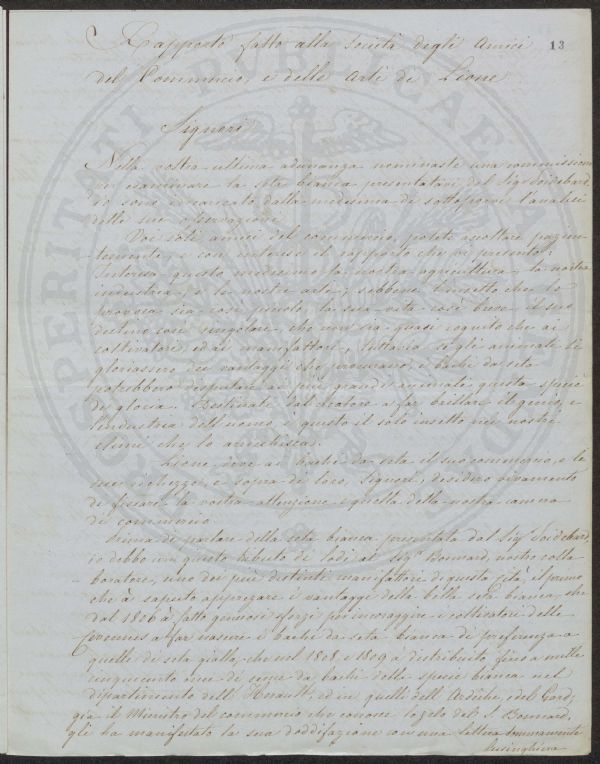 Rapporto fatto alla Società degli Amici 13
del Commercio, e delle Arti di Lione
Signori
Nella vostra ultima adunanza nominaste una commissione
per esaminare la seta bianca presentatavi dal Sigr Poidebard,
io sono incaricato dalla medesima di sottoporvi l'analisi
delle sue osservazioni.
Voi soli amici del commercio, potete ascoltare pazien-
temente, e con interesse il rapporto che vi presento:
Interessa questo medesimo la nostra agricoltura, la nostra
industria, e le nostre arti; sebbene l'insetto che lo
provoca sia così piccolo, la sua vita così breve, il suo
destino così singolare, che non sia quasi cognito che ai
coltivatori, ed ai manifattori, tuttavia se gli animali si
gloriassero dei vantaggi che procurano, i bachi da seta
potrebbero disputare ai più grandi animali questa specie
di gloria. Destinati dal creatore a far brillare il genio, e
l'industria dell'uomo, è questo il solo insetto nei nostri
climi che lo arricchisca.
Lione deve ai bachi da seta il suo commercio, e le
sue richezze, e sopra di loro, Signori, desidero vivamente
di fissare la vostra attenzione e quella della nostra camera
di commercio.
Prima di parlare della seta bianca presentata dal Sigr Poidebard,
io debbo un giusto tributo di lodi al Sigr Bonnard, nostro colla
boratore, uno dei più distinti manifattori di questa Città, il primo
che à saputo apprezzare i vantaggi della bella seta bianca, che
dal 1806 à fatto generosi sforzi per incoraggire i coltivatori delle
Cevennes a far nascere i bachi da seta bianca di preferenza a
quelli di seta gialla, che nel 1808, e 1809 à distribuito fino a mille
cinquecento oncie di seme da bachi della specie bianca nel
dipartimento dell'Herault, ed in quelli dell'Ardèche, e del Gard,
già il Ministro del commercio che conosce lo zelo del S. Bonnard,
gli ha manifestato la sua soddisfazione con una lettera sommamente
lusinghiera
PROSPERITATI PUBLICAE